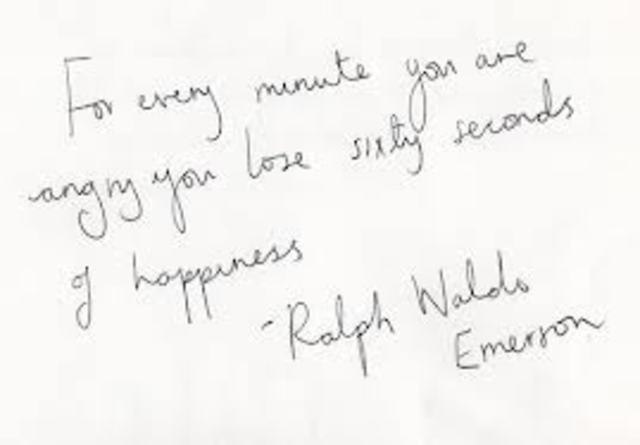 For every minute you are
angry you lose sixty seconds
of happiness
-Ralph Waldo
Emerson